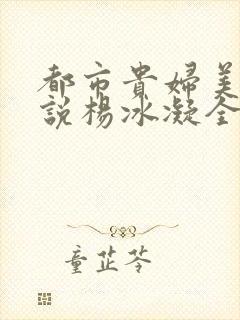 都市貴婦美
說楊冰凝全
童芷苓